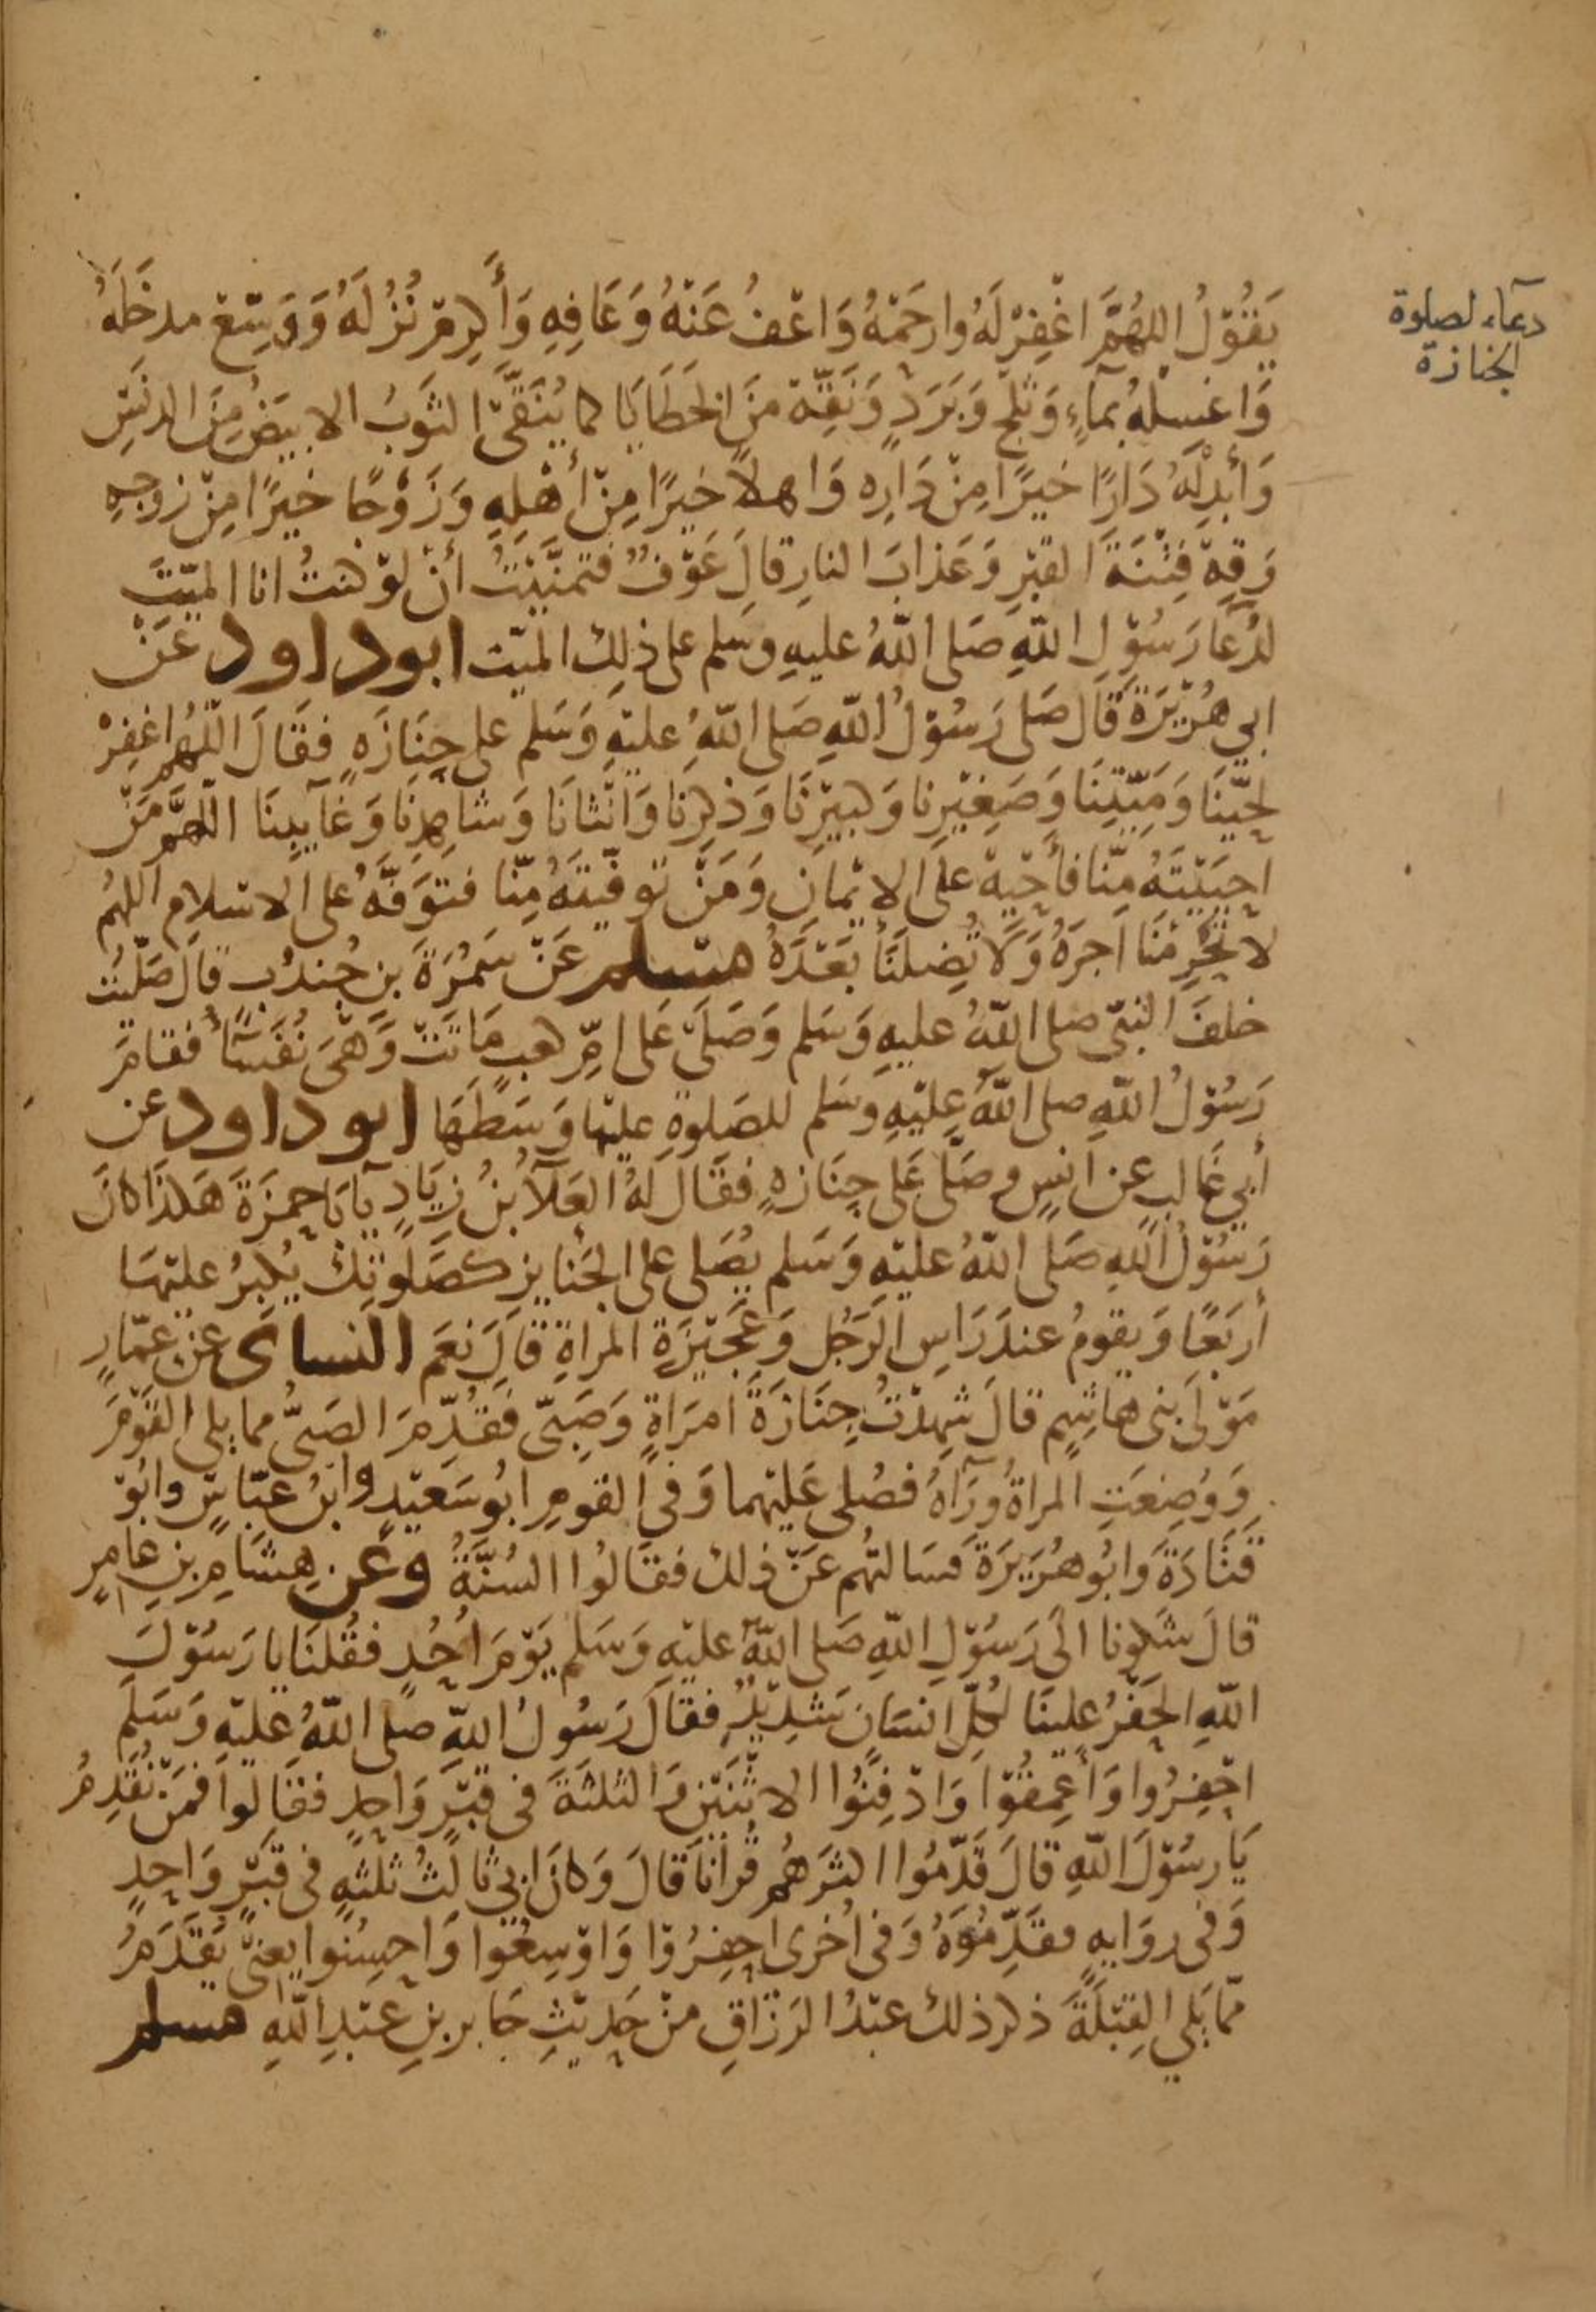 دعاء لصلوة
الجنازة
يَقُوْلُ اللهُمَّ اغْفِرْ لَهُ وارحَمْهُ وَاعْفُ عَنْهُ وَعَافِهِ وَأَكرِمْ نُزُلَهُ وَوَسِّعْ مدخَلَهُ
وَاغسِلْهُ بمآءٍ وَثلجٍ وَبَرَدٍ وَنَقِّهْ منَ الخَطَايَا كما يُنَقَّىْ الثوَبُ الابيَضُ مِنَ الدنَسِ
وَأَبْدِلْهُ دَارًا خيرًا مِنْ دَارِه وَاهلاً خيرًا مِنْ أَهْلِهِ وَزَوْجًا خيرًا مِنْ زوجِهِ
وَقِهِ فِتْنَةَ القبْرِ وَعَذابَ النارِ قالَ عَوْفٌ فتمنَّيْتُ أنْ لوْ كنتُ انا الميّتَ
لدُعَا رَسُوْلِ اللهِ صَلى اللهُ عليهِ وسَلم على ذلِكَ الميّت ابوداود عَنْ
ابي هُرَيْرَةَ قَال صَلى رَسُوْلُ اللهِ صَلى اللهُ عليْهِ وَسَلم على جِنَازَهٍ فقَالَ اللّهُم اغفِرْ
لحيّنَا وَمَيّتِنَا وَصَغِيْرِنا وَكبيْرِنَا وَذكرِنَا وَانْثانَا وَشاهِدِنَا وَغَآيبِنَا اللهمَّ مَنْ
احيَيْتَهُ مِنّا فأَحْيِهْ علَى الايْمانِ وَمَنْ توفّيتَهُ مِنّا فتوَفّهُ على الاسْلامِ اللهُم
لا تَحْرِمْنَا اَجرَهُ وَلا تُضِلَنَا بَعْدَهُ مسلم عَنْ سَمُرَةَ بنِ جُندُبٍ قالَ صَلّيْتُ
خلفَ النبيّ صلى اللهُ عليهِ وَسَلم وَصَلَىْ عَلى امِّ كعبٍ مَاتَتْ وَهْىَ نُفَسَآءُ فقامَ
رَسُوْلُ اللهِ صلى اللهُ عليْهِ وسَلم للصَلوةِ عليْهَا وَسَطَهَا ابوداود عن
أبي غالبٍ عن انسٍ وصَلّى عَلى جِنَازهٍ فقَالَ لهُ العَلآ بْنُ زِيَادٍ يآ بَاحمزَةَ هَكذَا كانَ
رَسُوْلُ اللهِ صَلى اللهُ عليْهِ وَسَلم يصَلى على الجَنايزِ كصَلوتِكَ يُكبِرُ عليْهَا
أربَعًا وَيقومُ عندَ رَاسِ الرَجُلِ وَعَجيْزَةِ المراةِ قالَ نعَم النساى عنْ عمّارٍ
مَوْلَى بنى هاشِمٍ قالَ شهِدْتُ جِنَازَةَ امرَاةٍ وَصَبِيّ فقُدِّمَ الصَبىُّ مما يلى القوْمَ
وَوُضِعَتِ المراةُ ورَآهُ فصُلى عَليْهما وَفي القومِ ابُوسَعيْدٍ وابنُ عبّاسٍ وابُوْ
قتَادَةَ وَابُوهُرَيرَةَ فسَالتُهم عَنْ ذلك فقَالُوا السُنَّةُ وعن هِشَامِ بنِ عَامِرٍ
قالَ شكونا الَى رَسُوْلِ اللهِ صَلى اللهُ عليْهِ وَسَلم يَوْمَ اُحُدٍ فقُلنَا يا رَسُوْلَ
اللهِ الحَفْرُ علينَا لكُلِّ انسَانٍ شدِيْدٌ فقالَ رَسُولُ اللهِ صلى اللهُ عليْهِ وَسَلَم
احْفِرُوا وَأَعمِقُوْا وَادْفِنُوا الاثْنَيْنِ وَالثلثَةَ في قبْرٍ وَاحدٍ فقالوا فمَنْ نُقَدِمُ
يَا رسُوْلَ اللهِ قالَ قَدِّمُوا اكثرَهُم قُرْاناً قالَ وَكانَ ابي ثالثُ ثلثهٍ في قبْرٍ وَاحِدٍ
وَفى روَايهٍ فقَدِّمُوْهُ وَفي اُخرى احفِرُوْا وَاوْسِعُوا وَاحسِنُوا يعنيْ يُقَدَمُ
ممّا يَلي القِبْلَةَ ذكر ذلك عبْدُ الرَزّاقِ منْ حَديْثِ جَابر بنِ عَبْدِ اللهِ مسلم